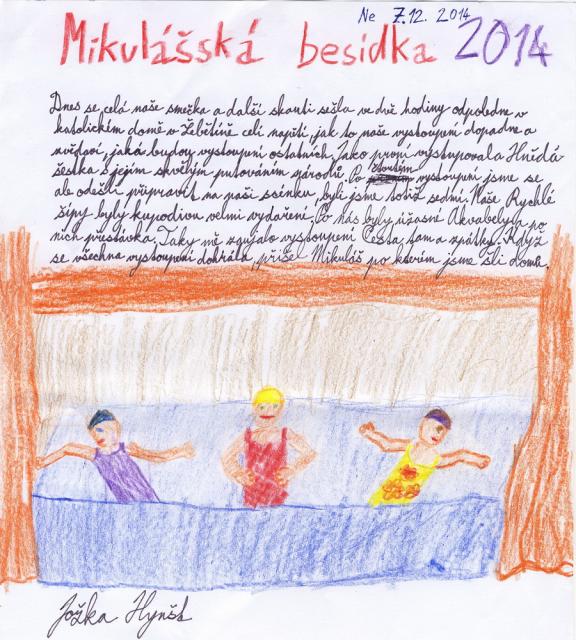 Ne 7.12. 2014
Mikulášská besidka 2014
Dnes se celá naše smečka a další skauti sešla ve dvě hodiny odpoledne v
katolickém domě v Žebětíně celí napětí, jak to naše vystoupení dopadne a
zvědaví, jaká budou vystoupení ostatních. Jako první vystupovala Hnědá
šestka s jejím skvělým putováním národů. Po čtvrtém vystoupení jsme se
ale odešli připravit na naši scénku, byli jsme totiž sedmí. Naše Rychlé
šípy byly kupodivu velmi vydařené. Po nás byly úžasné Akvabely a po
nich přestávka. Taky mě zaujalo vystoupení Cesta tam a zpátky. Když
se všechna vystoupení dohrála, přišel Mikuláš po kterém jsme šli domů.
Jožka Hynšt